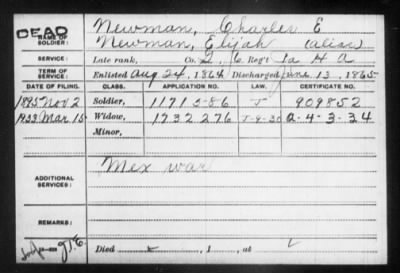 DEAD
NAME OF SOLDIER: Newman, Charles E
Newman, Elijah (alias)
SERVICE: Late rank, Co. 2, 6 Reg't Ia H A
TERM OF SERVICE: Enlisted Aug 24, 1864 Discharged June 13, 1865
DATE OF FILING. CLASS. APPLICATION NO. LAW. CERTIFICATE NO.
1895 Nov 2 Soldier, 1171586 J 909852
1933 Mar 15 Widow, 1732276 J-9-30 A-4-3-34
Minor,
ADDITIONAL SERVICES: Mex war
REMARKS:
Died , 1 , at